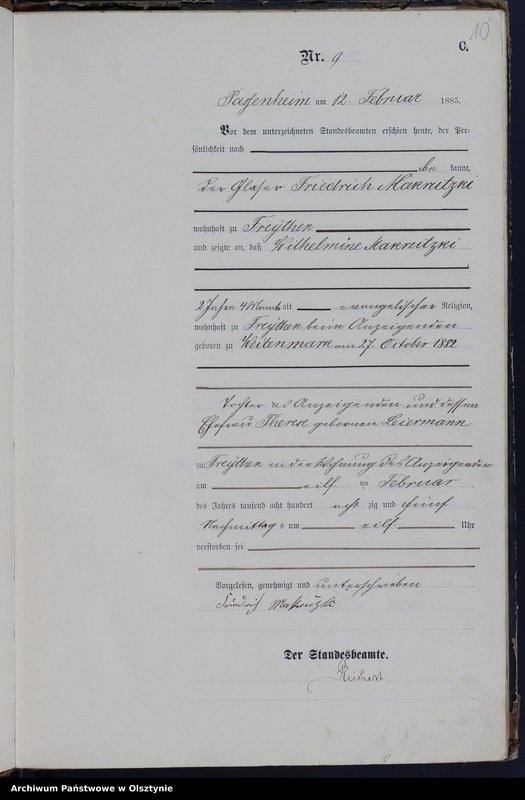 10
C.
Nr. 9
Passenheim am 12. Februar 1885.
Vor dem unterzeichneten Standesbeamten erschien heute, der Per-
sönlichkeit nach
be kannt,
der Glaser Friedrich Makrutzki
wohnhaft zu Freythen
und zeigte an, daß Wilhelmine Makrutzki
2 Jahre 4 Monate alt evangelischer Religion,
wohnhaft zu Freythen beim Anzeigenden
geboren zu am 27. October 1882
Tochter des Anzeigenden und dessen
Ehefrau Therese gebornen Leiermann
zu Freythen in der Wohnung des Anzeigenden
am eilf ten Februar
des Jahres tausend acht hundert acht zig und fünf
Nachmittag s um eilf Uhr
verstorben sei
Vorgelesen, genehmigt und unterschrieben
Friedrich Makrutzki
Der Standesbeamte.
Archiwum Państwowe w Olsztynie